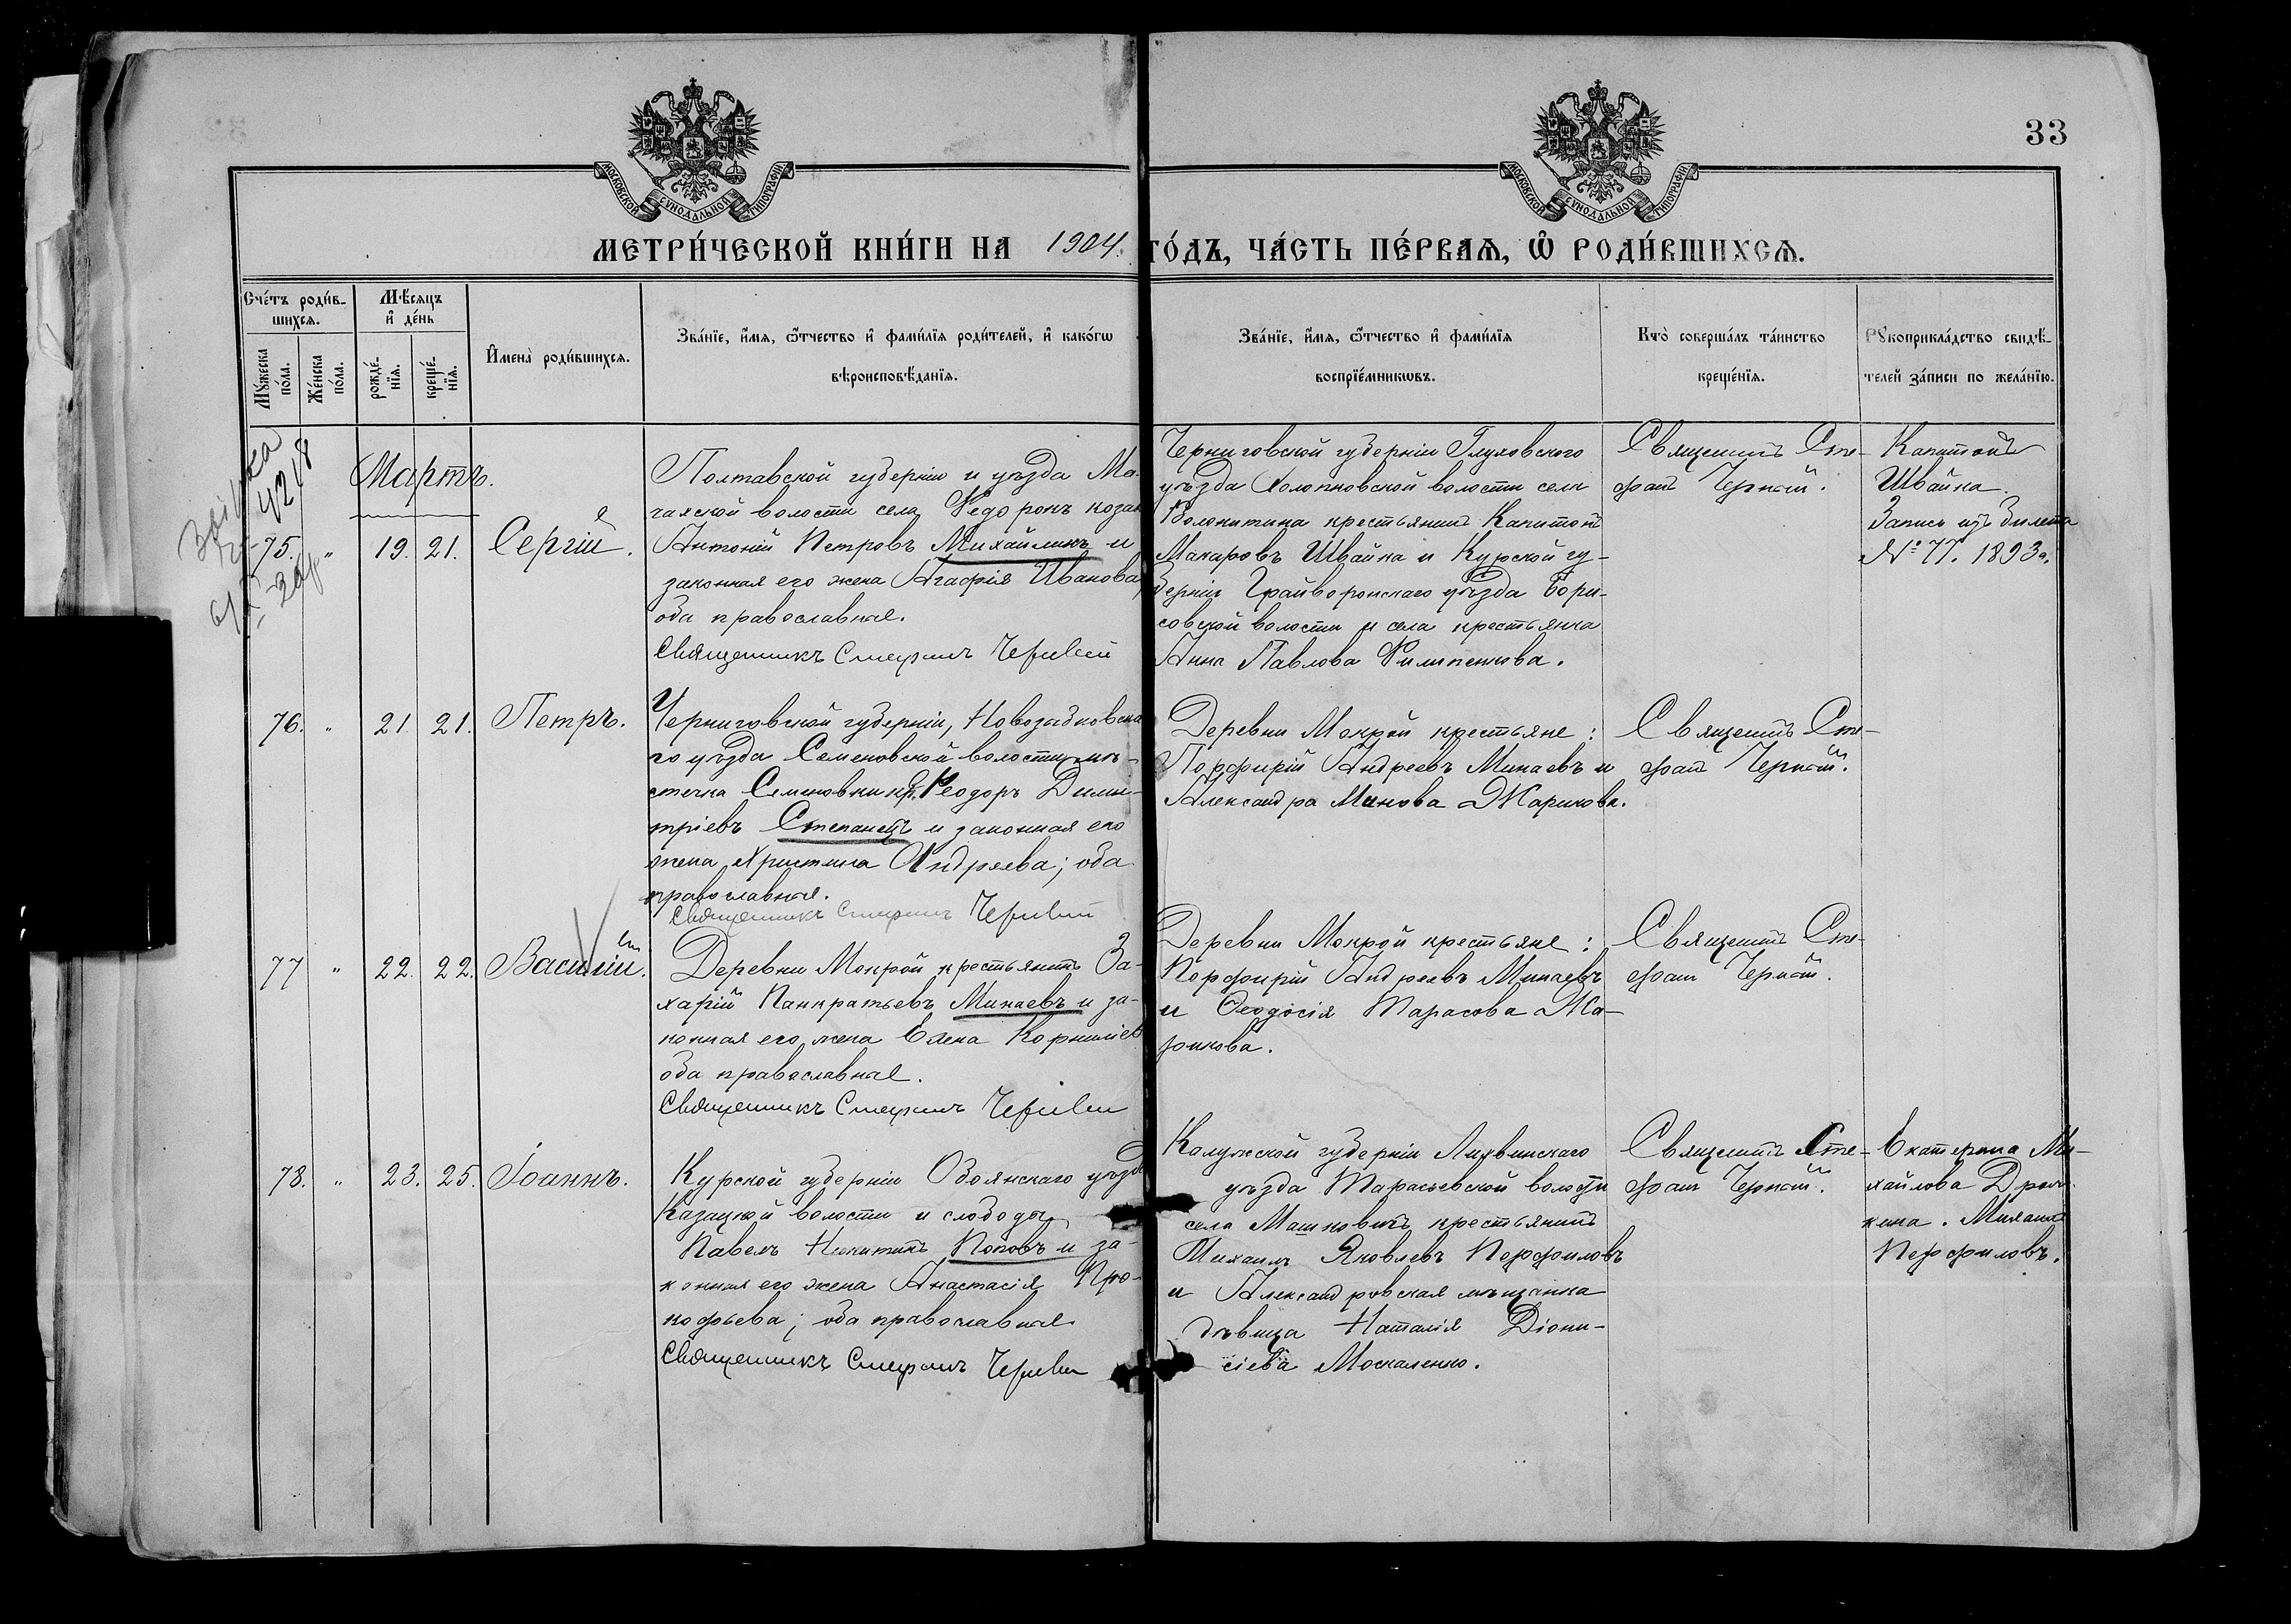 33
МОСКОВСКОЙ СѴНОДАЛЬНОЙ ТИПОГРАФІИ
МОСКОВСКОЙ СѴНОДАЛЬНОЙ ТИПОГРАФІИ
МЕТРИ́ЧЕСКОЙ КНИ́ГИ НА 1904. ГО́ДЪ, ЧА́СТЬ ПЕ́РВАѦ, Ѽ РОДИ́ВШИХСѦ.
Сче́тъ роди́в-
шихсѧ.
Мꙋ́жеска по́ла.
Же́нска по́ла.
Мѣ́сѧцъ и҆ де́нь
рожде́-нїѧ.
креще́-нїѧ.
И҆мена̀ роди́вшихсѧ.
Зва́нїе, и҆́мѧ, ѻ҆́тчество и҆ фами́лїѧ роди́телей, и҆ како́гѡ
вѣроисповѣ́данїѧ.
Зва́нїе, и҆́мѧ, ѻ҆́тчество и҆ фами́лїѧ
воспрїе́мникѡвъ.
Кто̀ соверша́лъ та́инство
креще́нїѧ.
Рꙋкоприкла́дство свидѣ́-
телей за́писи по жела́нїю.
Мартъ.
75. " 19. 21. Сергій.
Полтавской губерніи и уѣзда Ма-
чахской волости села Ѳедорокъ козак
Антоній Петровъ Михайликъ и
законная его жена Агафія Иванова,
оба православные.
Священникъ Стефанъ Чернявий
Черниговской губерніи Глуховского
уѣзда Холопковской волости села
Волокитина крестьянинъ Капитонъ
Макаровъ Швайка и Курской гу-
берніи Грайворонскаго уѣзда Бори-
совской волости и села крестьянка
Анна Павлова Филипенкова.
Священникъ Сте-
фанъ
Капитонъ
Швайка.
Запись изъ билета
№ 77. 1893г.
76. " 21. 21. Петръ.
Черниговской губерніи, Новозыбковска-
го уѣзда Семеновской волости, мѣ-
стечка Семеновки кр. Ѳеодоръ Дими-
тріевъ Степанецъ и законная его
жена Христина Андреева; оба
православные.
Священникъ Стефанъ
Деревни Мокрой крестьяне:
Порфирій Андреевъ Минаевъ и
Александра Жарикова.
Священникъ Сте-
фанъ
77 " 22. 22. Василій.
Деревни Мокрой крестьянинъ За-
харій Панкратьевъ Минаевъ и за-
конная его жена Елена Корниліев
оба православные.
Священникъ Стефанъ
Деревни Мокрой крестьяне:
Порфирій Андреевъ Минаевъ
и Ѳеодосія Тарасова Жа-
рикова.
Священникъ Сте-
фанъ
78. " 23. 25. Іоаннъ.
Курской губерніи Обоянскаго уѣзда
Казацкой волости и слободы
Павелъ Никитинъ Поповъ и за-
конная его жена Анастасія Про-
кофьева; оба православные
Священникъ Стефанъ
Калужской губерніи Лихвинскаго
уѣзда Тарасьевской волости
села Машковичъ крестьянинъ
Михаилъ Яковлевъ Перфиловъ
и Александровская мѣщанка
дѣвица Наталія Діони-
сіева Москаленко.
Священникъ Сте-
фанъ
Екатерина Ми-
хайлова
Михаилъ
Перфиловъ.